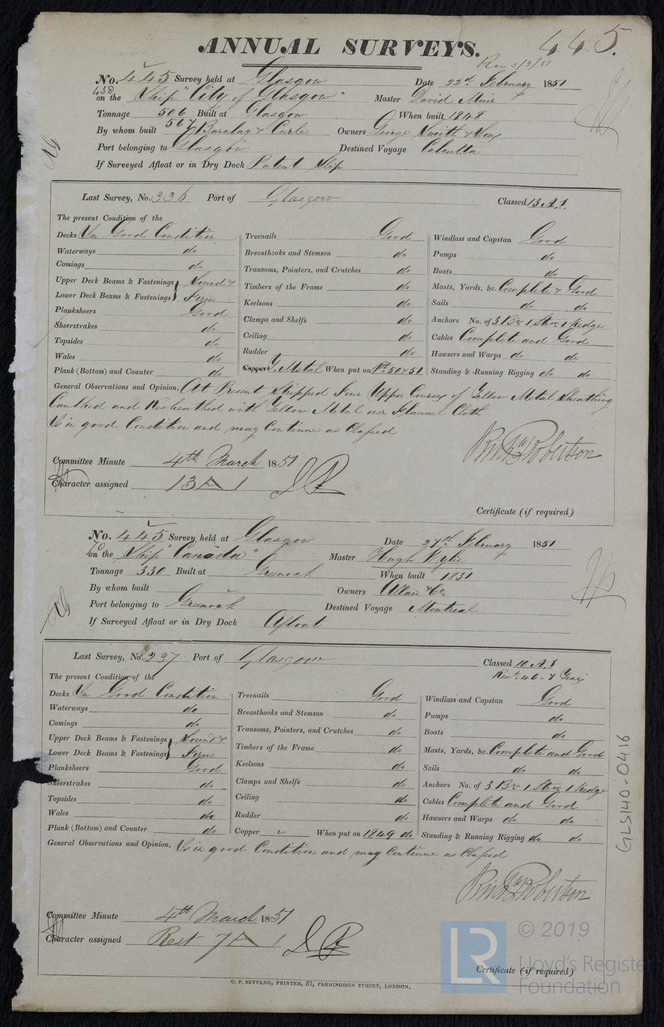 ANNUAL SURVEYS. 445.
Rec 5/3/51
No. 445 Survey held at Glasgow Date 22d February 1851
438
on the Ship "City of Glasgow" Master David Muir
Tonnage 506 Built at Glasgow When built 1848
567
By whom built Barclay & Curle Owners George Smith & Son
Port belonging to Glasgow Destined Voyage Calcutta
If Surveyed Afloat or in Dry Dock Patent Slip
Last Survey, No. 336 Port of Glasgow Classed 13 A1
The present Condition of the
Decks In Good Condition
Waterways do
Comings do
Upper Deck Beams & Fastenings Sound &
Lower Deck Beams & Fastenings Firm
Planksheers Good
Sheerstrakes do
Topsides do
Wales do
Plank (Bottom) and Counter do
Treenails Good
Breasthooks and Stemson do
Transoms, Pointers, and Crutches do
Timbers of the Frame do
Keelsons do
Clamps and Shelfs do
Ceiling do
Rudder do
Copper Y Metal When put on Pt 50 & 51
Windlass and Capstan Good
Pumps do
Boats do
Masts, Yards, &c. Complete & Good
Sails do do
Anchors No. of 3 Br 1 Str 1 Kedge
Cables Complete and Good
Hawsers and Warps do do
Standing & Running Rigging do do
General Observations and Opinion, At Present Stripped Four Upper Courses of Yellow Metal Sheathing
Caulked and Resheathed with Yellow Metal over Flannel Cloth
Is in good Condition and may Continue as Classed
Robertson
Committee Minute 4th March 1851
Character assigned 13 A 1
Certificate (if required)
No. 445 Survey held at Glasgow Date 27th February 1851
on the Ship "Canada" Master Hugh Wylie
Tonnage 330 Built at Greenock When built 1831
By whom built Owners Allan & Co
Port belonging to Greenock Destined Voyage Montreal
If Surveyed Afloat or in Dry Dock Afloat
Last Survey, No. 237 Port of Glasgow Classed 10 A1
Rest 46-7 Years
The present Condition of the
Decks In Good Condition
Waterways do
Comings do
Upper Deck Beams & Fastenings Sound &
Lower Deck Beams & Fastenings Firm
Planksheers Good
Sheerstrakes do
Topsides do
Wales do
Plank (Bottom) and Counter do
Treenails Good
Breasthooks and Stemson do
Transoms, Pointers, and Crutches do
Timbers of the Frame do
Keelsons do
Clamps and Shelfs do
Ceiling do
Rudder do
Copper When put on 1849 do
Windlass and Capstan Good
Pumps do
Boats do
Masts, Yards, &c. Complete and Good
Sails do do
Anchors No. of 3 Br 1 Str 1 Kedge
Cables Complete and Good
Hawsers and Warps do do
Standing & Running Rigging do do
General Observations and Opinion, Is in good Condition and may Continue as Classed
Robertson
Committee Minute 4th March 1851
Character assigned Rest 7 A 1
Certificate (if required)
C. F. SEYFANG, PRINTER, 57, FARRINGDON STREET, LONDON.
GLS140-0416
LR © 2019
Lloyd's Register
Foundation